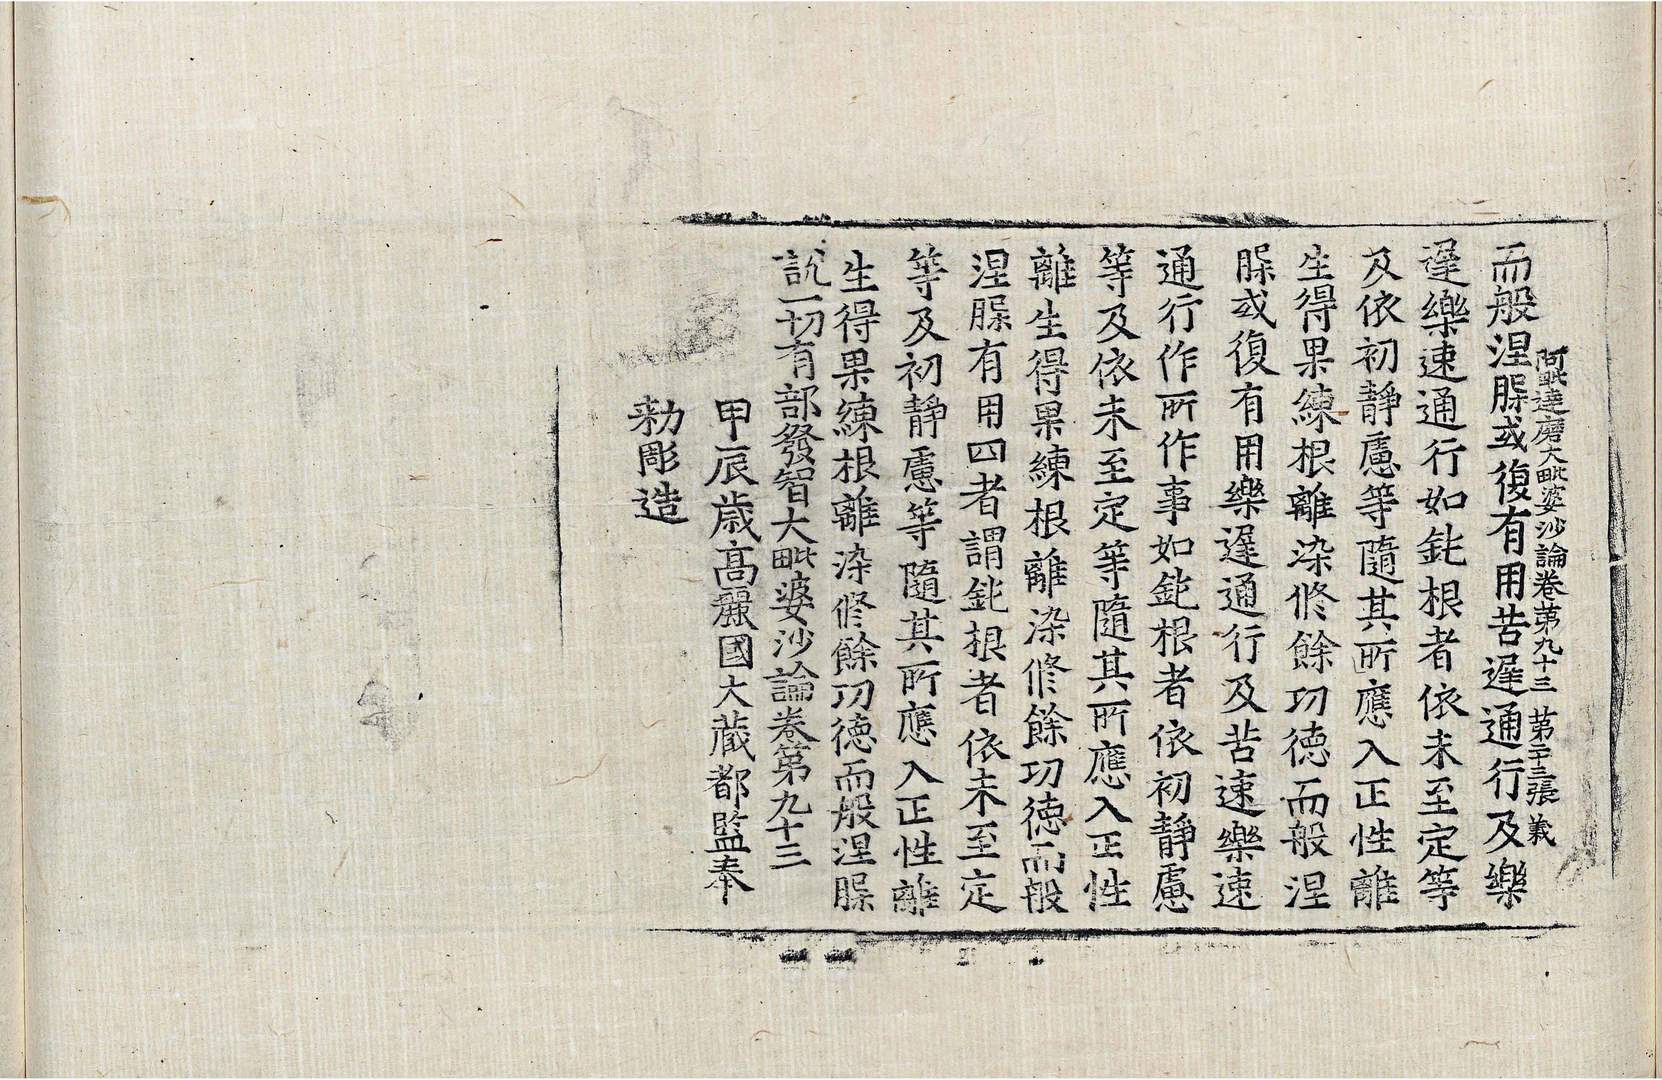 阿毗達磨大毗婆沙論卷第九十三 第二十三張 義
而般涅槃或復有用苦遲通行及樂
遲樂速通行如鈍根者依未至定等
及依初靜慮等隨其所應入正性離
生得果練根離染修餘功德而般涅
槃或復有用樂遲通行及苦速樂速
通行作所作事如鈍根者依初靜慮
等及依未至定等隨其所應入正性
離生得果練根離染修餘功德而般
涅槃有用四者謂鈍根者依未至定
等及初靜慮等隨其所應入正性離
生得果練根離染修餘功德而般涅槃
說一切有部發智大毗婆沙論卷第九十三
甲辰歳高麗國大藏都監奉
勑彫造